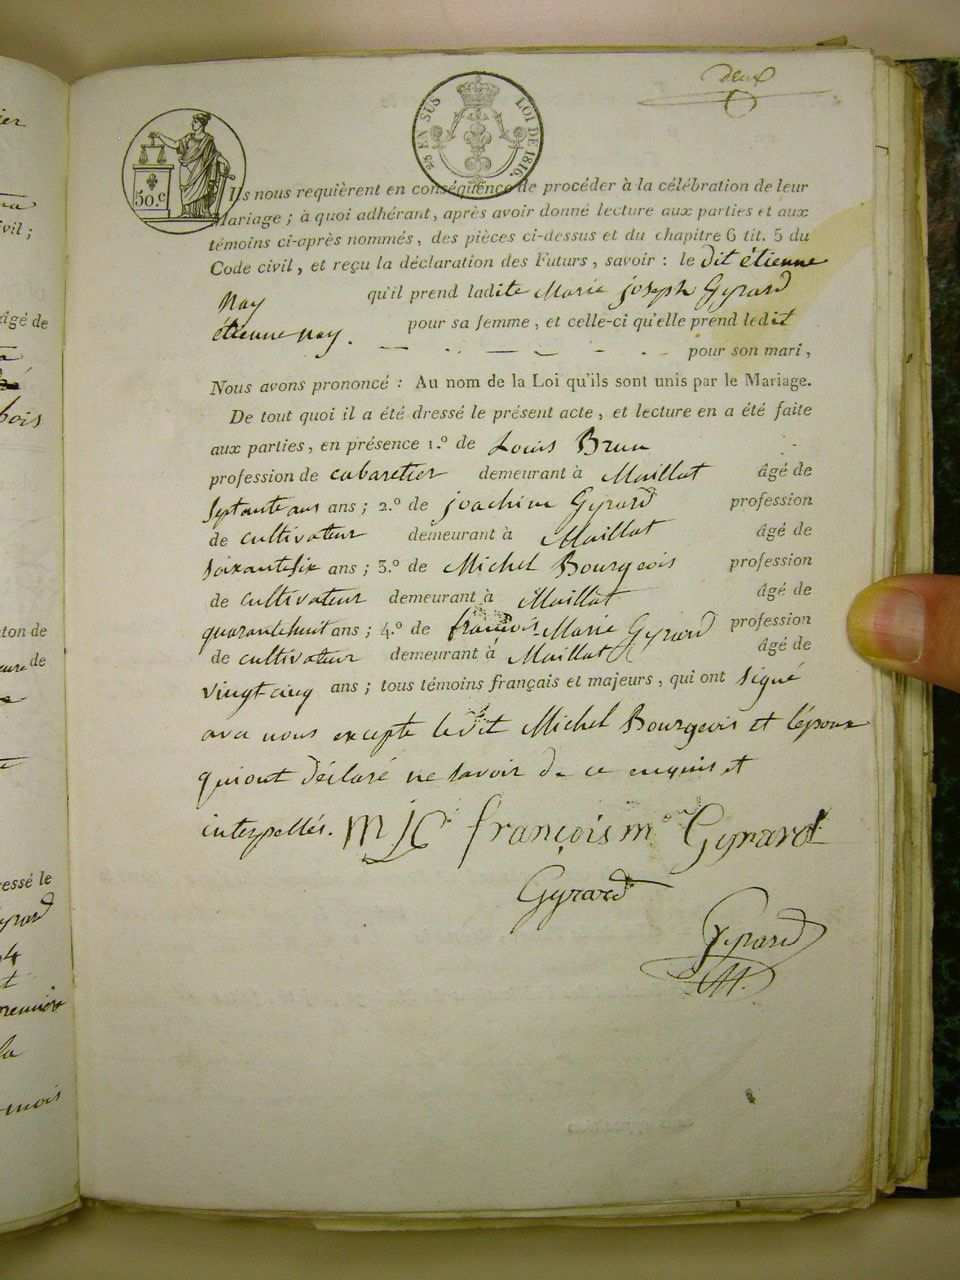 deux
25 EN SUS LOI DE 1816.
50.c
Ils nous requièrent en conséquence de procéder à la célébration de leur
Mariage ; à quoi adhérant, après avoir donné lecture aux parties et aux
témoins ci-après nommés, des pièces ci-dessus et du chapitre 6 tit. 5 du
Code civil, et reçu la déclaration des Futurs, savoir : le dit étienne
Nay qu'il prend ladite Marie joseph Gyrard
pour sa femme, et celle-ci qu'elle prend ledit
étienne Nay. pour son mari,
Nous avons prononcé : Au nom de la Loi qu'ils sont unis par le Mariage.
De tout quoi il a été dressé le présent acte, et lecture en a été faite
aux parties, en présence 1.º de Louis Brun
profession de cabaretier demeurant à Maillat âgé de
septante ans ans ; 2.º de joachim Gyrard profession
de cultivateur demeurant à Maillat âgé de
soixante six ans ; 3.º de Michel Bourgeois profession
de cultivateur demeurant à Maillat âgé de
quarante huit ans ; 4.º de françois Marie Gyrard profession
de cultivateur demeurant à Maillat âgé de
vingt cinq ans ; tous témoins français et majeurs, qui ont signé
avec nous excepté ledit Michel Bourgeois et l'époux
qui ont déclaré ne savoir de ce enquis et
interpellés. françois m. Gyrard
Gyrard
Gyrard
ier
vil ;
âgé de
bois
ton de
de
essé le
yrard
mois